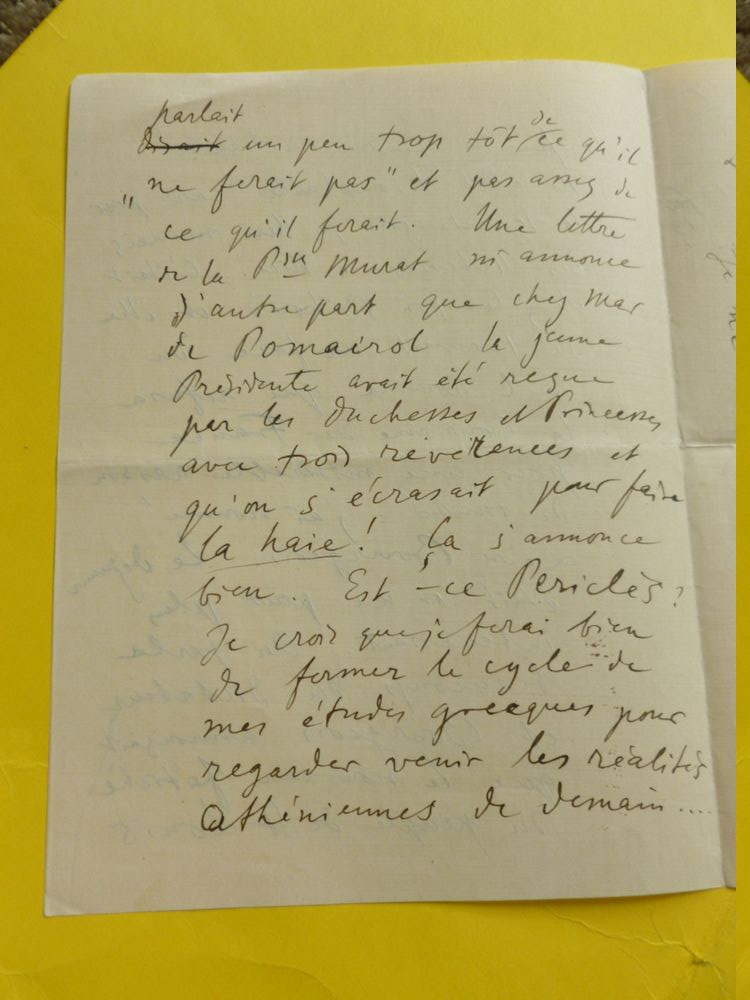 parlait
disait un peu trop tôt de ce qu'il
"ne ferait pas" et pas assez de
ce qu'il ferait. Une lettre
de la Psse Murat m'annonce
d'autre part que chez Mme
de Pomairol la jeune
Présidente avait été reçue
par les Duchesses et Princesses
avec trois révérences et
qu'on s'écrasait pour faire
la haie! Ça s'annonce
bien. Est-ce Periclès?
Je crois que je ferai bien
de fermer le cycle de
mes études grecques pour
regarder venir les réalités
athéniennes de demain....